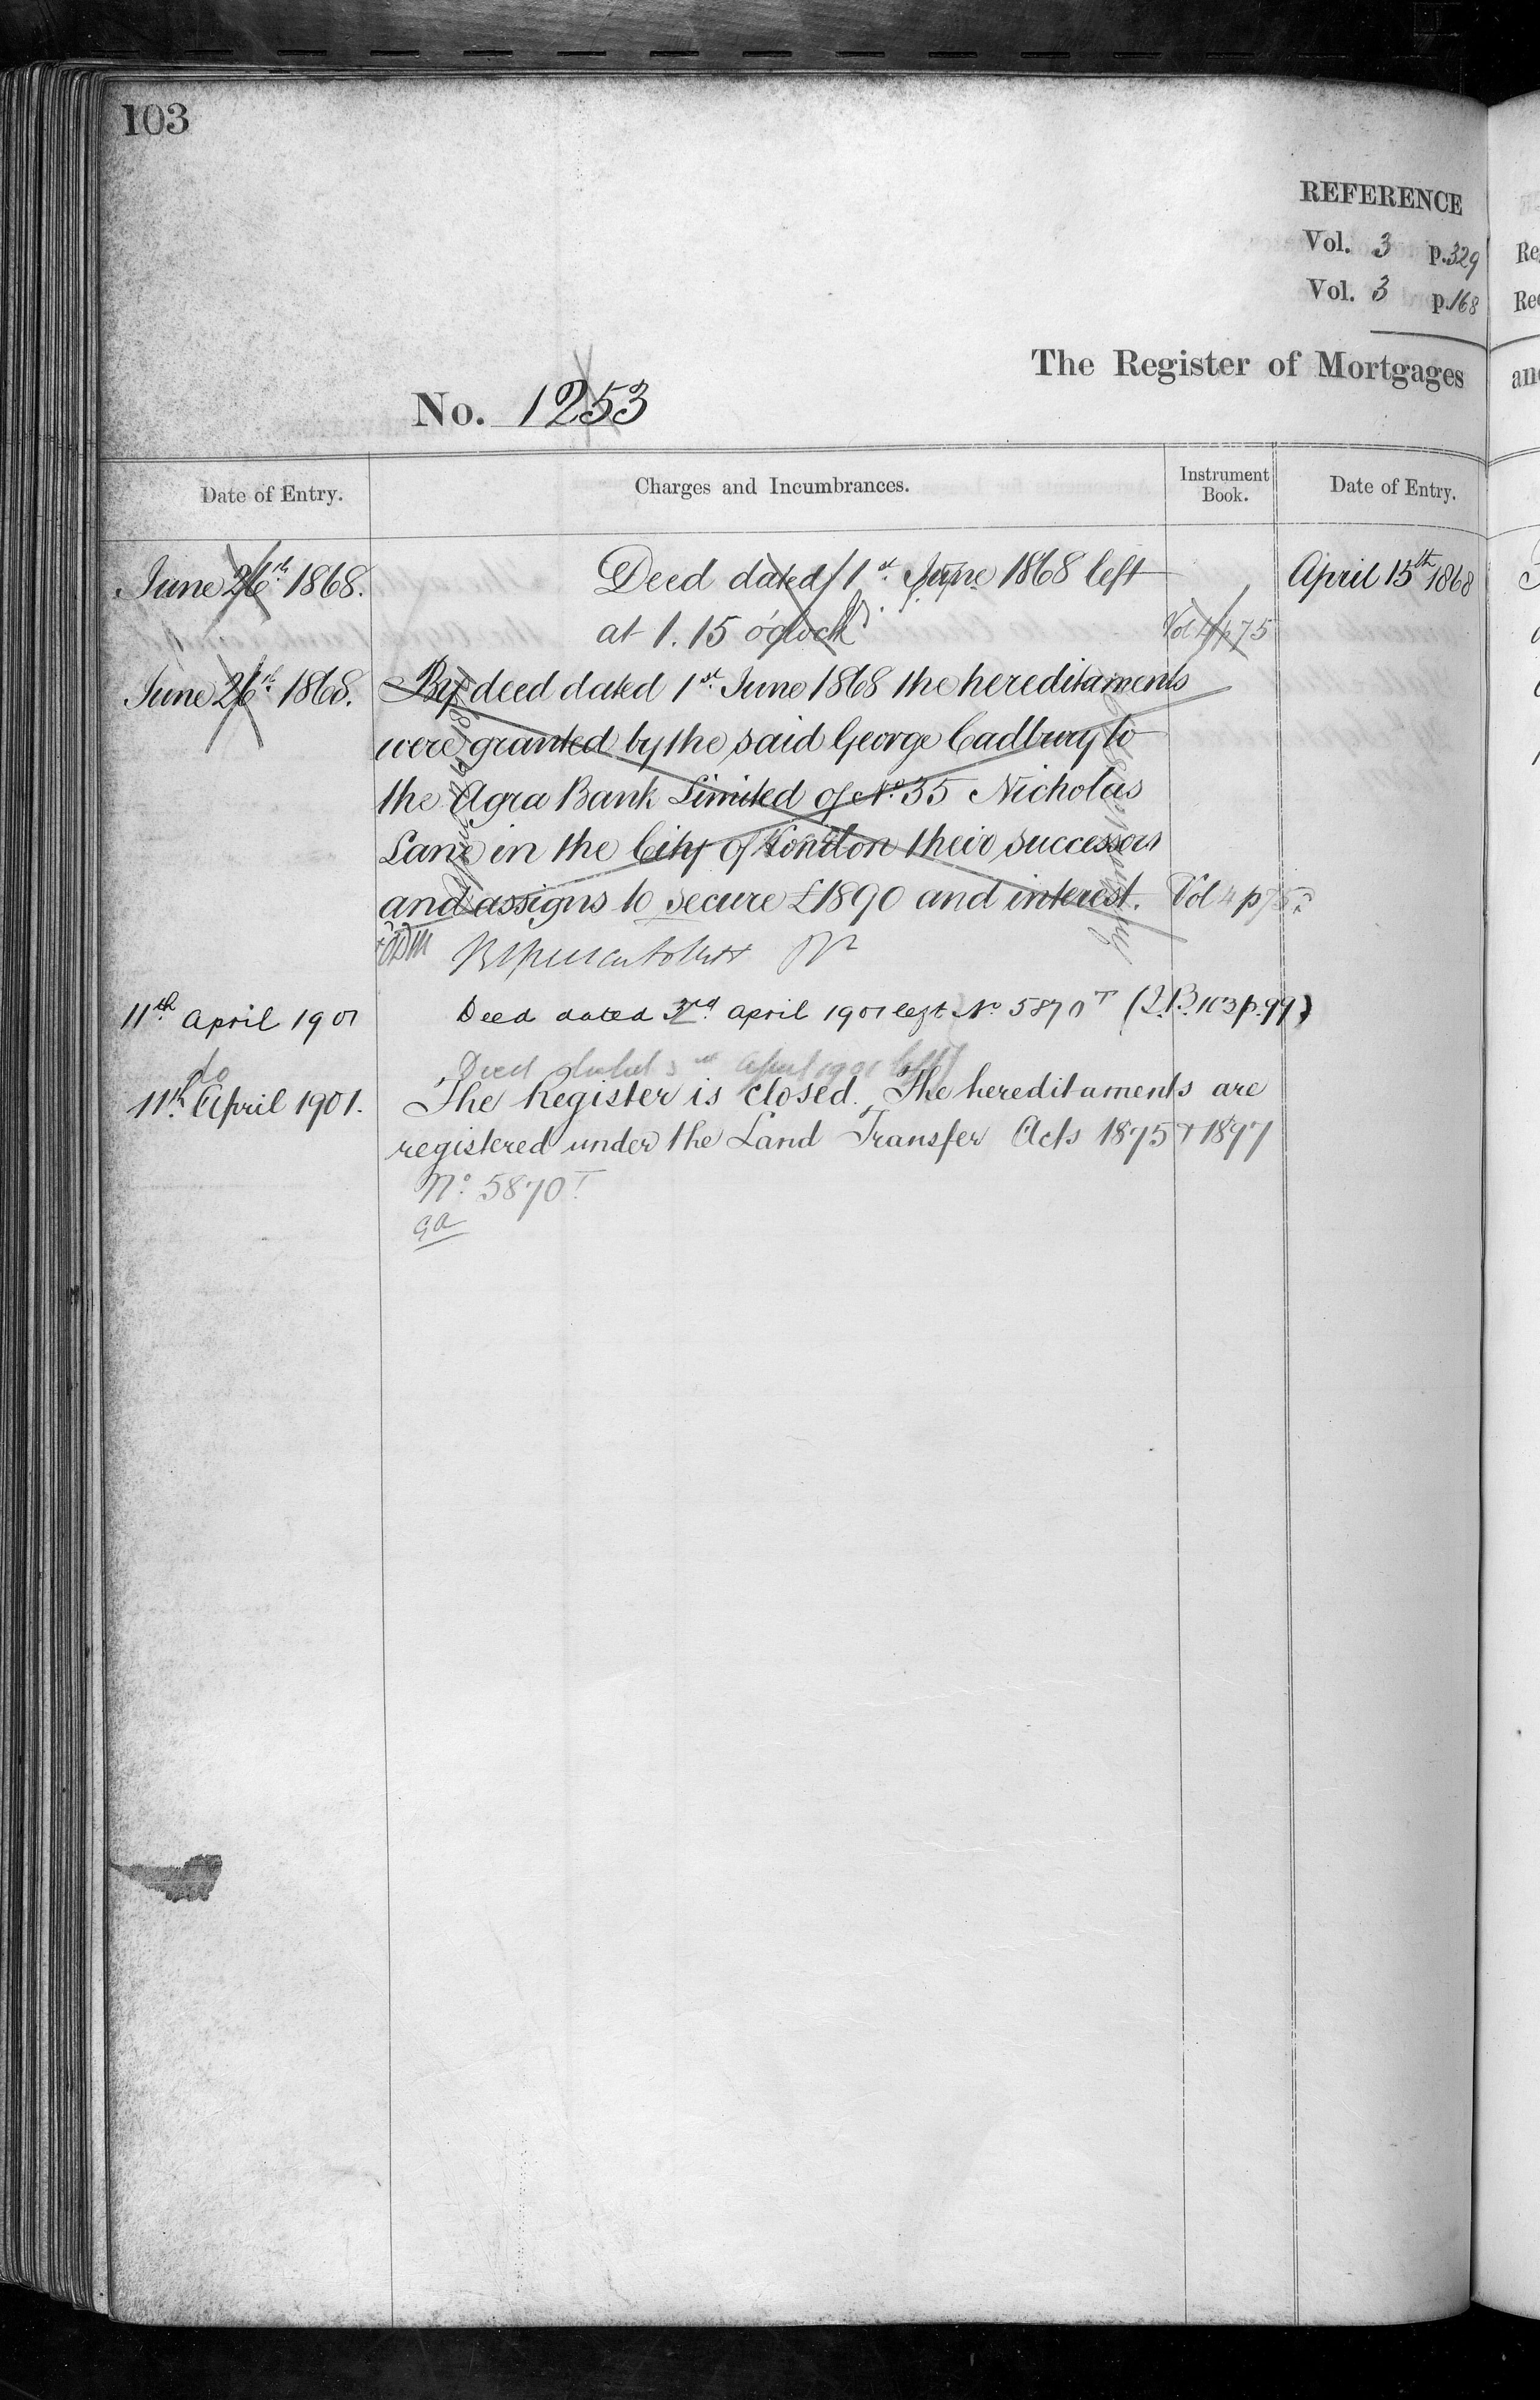 103
REFERENCE
Vol. 3 p.329
Vol. 3 p.168
The Register of Mortgages
No. 1253
Date of Entry. Charges and Incumbrances. Instrument Book. Date of Entry.
June 26th 1868. Deed dated 1st June 1868 left April 15th 1868
at 1.15 o'clock Vol 4 p 75
June 26th 1868. By deed dated 1st June 1868 the hereditaments
were granted by the said George Cadbury to
the Agra Bank Limited of No. 35 Nicholas
Lane in the City of London their successors
and assigns to secure £1890 and interest. Vol 4 p 75
11th April 1901 Deed dated 3rd April 1901 No 5870 T (I.B. 103 p. 99)
do Deed dated 3rd April 1901 left
11th April 1901. The Register is closed. The hereditaments are
registered under the Land Transfer Acts 1875 + 1897
No. 5870 T